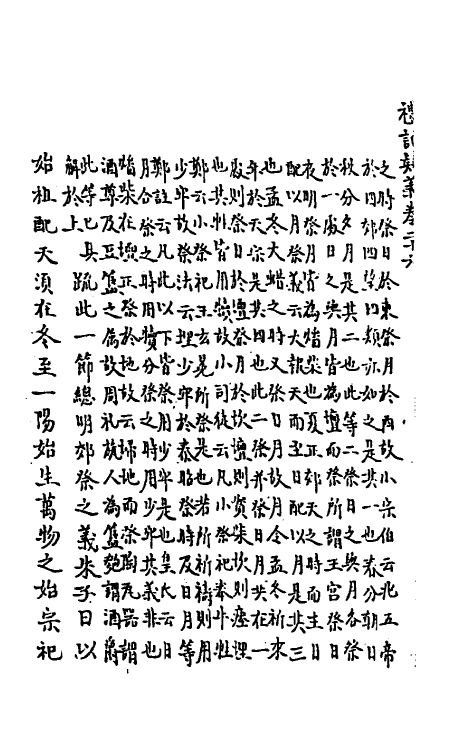 禮記疑義卷二十六
之時祭日於東祭月於西故小宗伯云兆五帝
於四郊四望四類亦如之是共一也春分朝日
秋分夕月是共二也此等二祭日之與月各祭
於一處日之與月皆為壇而祭所謂王宮祭日
夜明祭月皆為燔柴也夏正郊天之時而主日
配以月祭義云大報天而主日配以月是共三
也孟冬大蜡之時又祭日月故月令孟冬祈來
年於天宗是共四也此二祭並祭日月共在一
處則祭日於壇祭月於坎壇則實柴坎則瘞埋
也其牲皆用犢故小司徒云凡小祭祀奉牛牲
鄭云小祭祀王玄冕所祭是也若所祈禱則用
少牢故祭法云埋少牢於泰昭祭時及日月等
鄭註云凡此以下皆祭用少牢是也皇氏云日
月合祭之時用犢分祭之時用少牢共義非也
燔柴在壇正祭於地故云掃地而祭陶瓦器謂
酒尊及豆簋之屬故周禮瓬人為簋匏謂酒爵
此等已具
解於上
疏此一節總明郊祭之義朱子曰以
始祖配天須在冬至一陽始生萬物之始宗祀